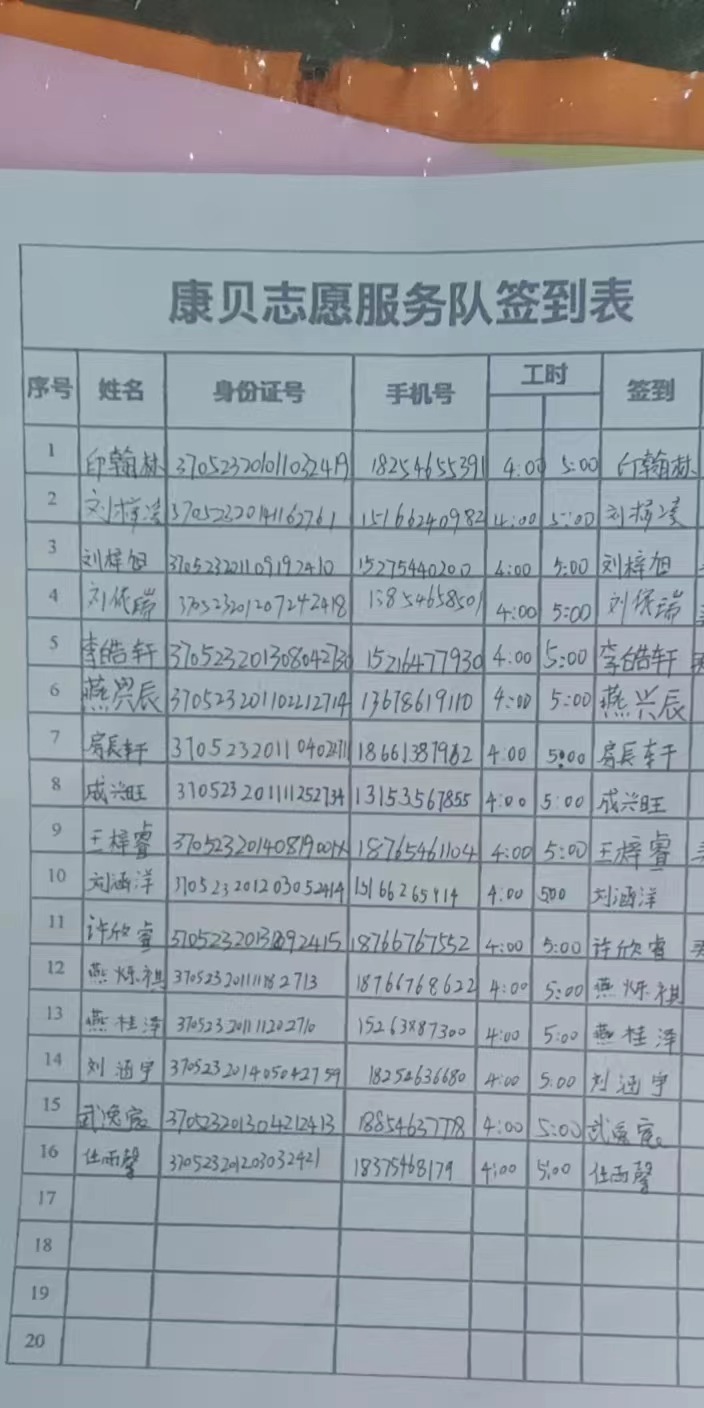 康贝志愿服务队签到表
序号 姓名 身份证号 手机号 工时 签到
1 印翰林 370523201011032419 18254655391 4:00 5:00 印翰林
2 刘梓凌 15166240982 4:00 5:00 刘梓凌
3 刘梓旭 370523201109192410 15275440200 4:00 5:00 刘梓旭
4 刘依瑞 370523201207242418 13854658501 4:00 5:00 刘依瑞
5 李皓轩 370523201308042730 15216477930 4:00 5:00 李皓轩
6 燕兴辰 370523201102212714 13678619110 4:00 5:00 燕兴辰
7 18661387962 4:00 5:00
8 成兴旺 370523201111252734 13153567855 4:00 5:00 成兴旺
9 王梓睿 37052320140819001X 18765461104 4:00 5:00 王梓睿
10 刘涵洋 370523201203052414 4:00 5:00 刘涵洋
11 许欣睿 18766767552 4:00 5:00 许欣睿
12 燕烁祺 370523201111182713 18766768622 4:00 5:00 燕烁祺
13 燕桂泽 370523201111202710 15263887300 4:00 5:00 燕桂泽
14 刘涵宇 370523201405042759 18254636680 4:00 5:00 刘涵宇
15 370523201304212413 18854637778 4:00 5:00
16 任雨馨 370523201203032421 18375468179 4:00 5:00 任雨馨
17
18
19
20